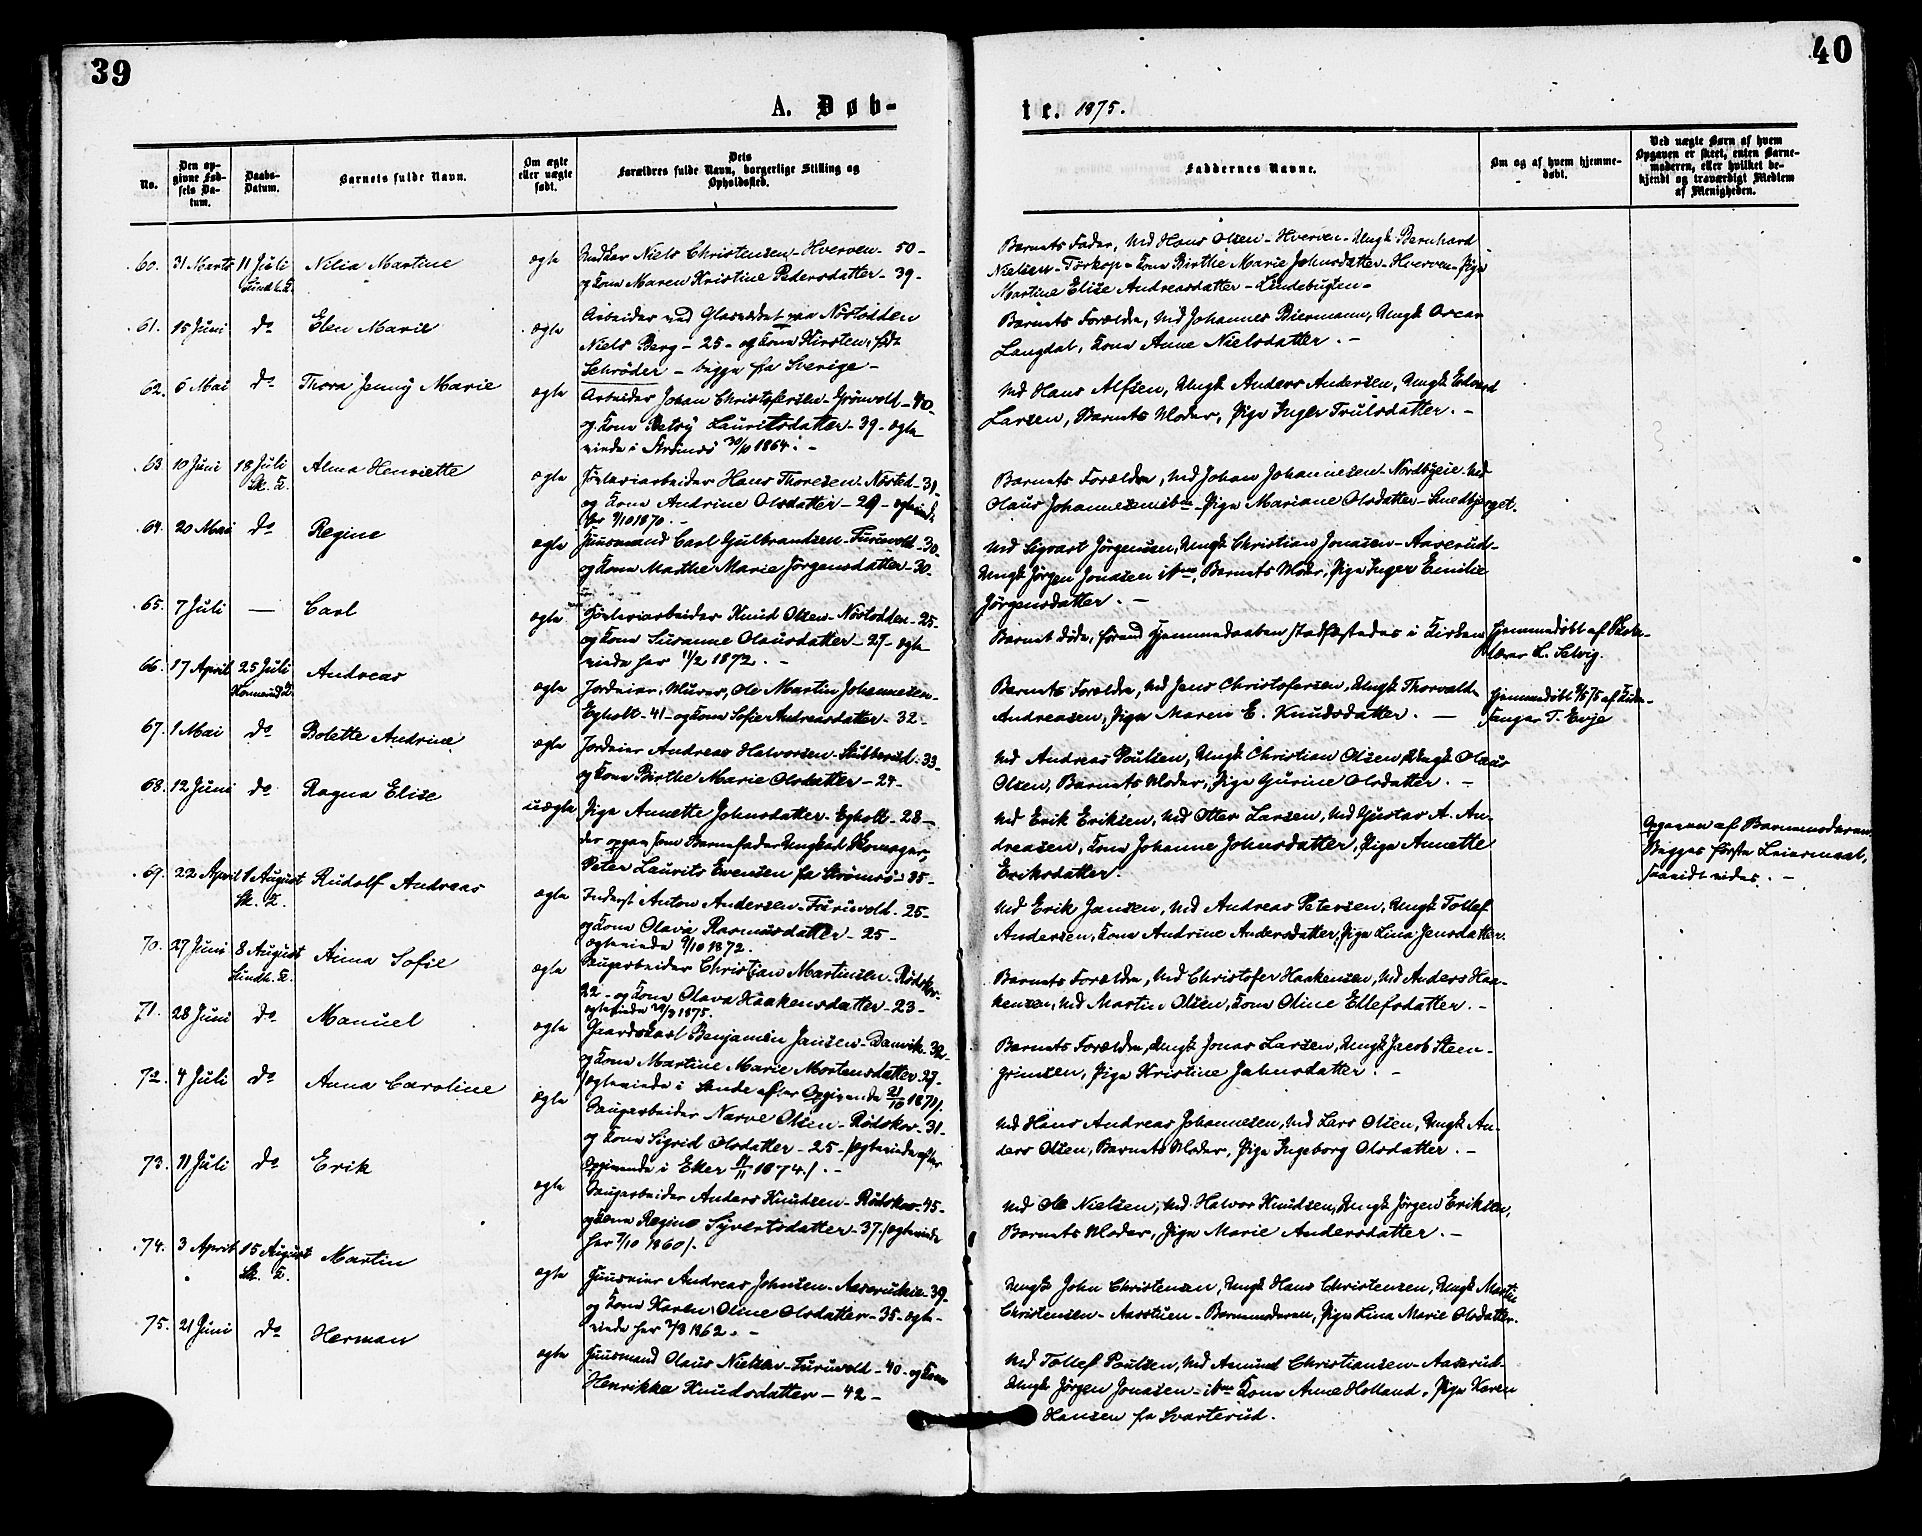 39
40
A. Døb-
te. 1875.
No.
Den op-
givne Fød-
sels Da-
tum.
Daabs-
Datum.
Barnets fulde Navn.
Om ægte
eller uægte
født.
Dets
Forældres fulde Navn, borgerlige Stilling og
Opholdssted.
Faddernes Navne.
Om og af hvem hjemme-
døbt.
Ved uægte Børn af hvem
Opgaven er skeet, enten Barne-
moderen, eller hvilket be-
kjendt og troværdigt Medlem
af Menigheden.
60. 31 Marts 11 Juli Nilia Martine ægte Niels Christensen - Hverven - 50 -
og Kone Maren Kristine Pedersdatter - 39 -
Barnets Fader, Md Hans Olsen - Hverven - Ungk Bernhard
Nielsen - Torkop - Kone Birthe Marie Johnsdatter - Hverven - Pige
Martine Elise Andreasdatter - Lindebugten -
61. 15 Juni do Elen Marie ægte Arbeider ved Glasværket paa Nøstodden
Niels Berg - 25 - og Kone Kirsten, født
Schrøder - begge fra Sverige -
Barnets Forældre, Md Johannes Biermann, Ungk Oscar
Langdal, Kone Anne Nielsdatter. -
62. 6 Mai do Thora Jenny Marie ægte Arbeider Johan Christofersen - Grønvold - 40 -
og Kone Betsy Lauritsdatter - 39 - ægte
viede i Strømsø 30/10 1864. -
Md Hans Alfsen, Ungk Anders Andersen, Ungk Edvard
Larsen, Barnets Moder, Pige Inger Trulsdatter. -
63 10 Juni 18 Juli Sk. K. Alma Henriette ægte Hans Thoresen - Nøsted - 31 -
og Kone Andrine Olsdatter - 29 - ægteviede
her 9/10 1870. -
Barnets Forældre, Md Johan Johannesen - Nordbyeie Md
Olaus Johannesen ibm - Pige Mariane Olsdatter - Smedbjerget.
64. 20 Mai do Regine ægte Huusmand Carl Gulbrandsen - Furuvold - 30 -
og Kone Marthe Marie Jørgensdatter - 30 -
Md Sigvart Jørgensen, Ungk Christian Jonassen - Aaserud -
Ungk Jørgen Jonassen ibm, Barnets Moder, Pige Inger Emilie
Jørgensdatter. -
65. 7 Juli - Carl ægte Knud Olsen - Nøstodden - 25 -
og Kone Susanne Olausdatter - 27 - ægte
viede her 11/2 1872. -
Barnet døde, førend Hjemmedaaben stadfæstedes i Kirken
Hjemmedøbt af Skole-
lærer L. Selvig.
66. 17 April 25 Juli Andreas ægte Jordeier, Murer, Ole Martin Johannesen -
Egholt - 41 - og Kone Sofie Andreasdatter - 32 -
Barnets Forældre, Md Jens Christofersen, Ungk Thorvald
Andreasen, Pige Maren E. Knudsdatter. -
Hjemmedøbt af Kirke-
sanger T. Evje
67. 1 Mai do Bolette Andrine ægte Jordeier Andreas Halvorsen - Stubberud - 33 -
og Kone Birthe Marie Olsdatter - 24 -
Md Andreas Poulsen, Ungk Christian Olsen, Ungk Olaus
Olsen, Barnets Moder, Pige Gurine Olsdatter. -
68. 12 Juni do Ragna Elise uægte Pige Annette Johnsdatter - Egholt - 28 -
der opgav som Barnefader Ungkarl
Peter Laurits Evensen fra Strømsø - 35 -
Md Erik Eriksen, Md Otter Larsen, Md Gustav A. An-
dreasen, Kone Johanne Johnsdatter, Pige Annette
Eriksdatter.
Opgaven af Barnemoderen.
Begges første Leiermaal,
saavidt vides. -
69. 22 April 1 August Sk. K. Rudolf Andreas ægte Inderst Anton Andersen - Furuvold - 25 -
og Kone Olava Rasmusdatter - 25 -
ægteviede 9/10 1872.
Md Erik Jansen, Md Andreas Petersen, Ungk Tollef
Andersen, Kone Andrine Andersdatter, Pige Lina Jensdatter.
70. 27 Juni 8 August Anna Sofie ægte Brugarbeider Christian Martinsen - Rødskov -
22 - og Kone Olava Haakensdatter - 23 -
Barnets Forældre, Md Christofer Haakensen, Md Anders Haa-
kensen, Md Martin Olsen, Kone Oline Ellefsdatter. -
71. 28 Juni do Manuel ægte Gaardskarl Benjamin Jansen - Damvik - 32 -
og Kone Martine Marie Mortensdatter - 27 -
(ægteviede i Sande efter Opgivende 21/10 1871).
Barnets Forældre, Ungk Jonas Larsen, Ungk Jacob Steen-
grimsen, Pige Kristine Jahnsdatter. -
72. 4 Juli do Anna Caroline ægte Brugarbeider Narve Olsen - Rødskov - 31 -
og Kone Sigrid Olsdatter - 25 - (ægteviede efter
Opgivende i Eker 1874). -
Md Hans Andreas Johannesen, Md Lars Olsen, Ungk An-
ders Olsen, Barnets Moder, Pige Ingeborg Olsdatter. -
73. 11 Juli do Erik ægte Brugarbeider Anders Knudsen - Rødskov - 45 -
og Kone Regine Syvertsdatter - 37. (ægteviede
her 7/10 1860).
Md Ole Nielsen, Md Halvor Knudsen, Ungk Jørgen Eriksen,
Barnets Moder, Pige Marie Andersdatter. -
74. 3 April 15 August Sk. K. Martin ægte Huuseier Andreas Johnsen - Aaserudeie - 39 -
og Kone Karen Oline Olsdatter - 35 - ægte-
viede her 1862. -
Ungk John Christensen, Ungk Hans Christensen, Ungk Martin
Christensen - Aarstuen - Barnemoderen, Pige Lina Marie Olsdatter.
75. 21 Juni do Herman ægte Huusmand Olaus Nielsen - Furuvold - 40 - og Kone
Henrikke Knudsdatter - 42 -
Md Tollef Poulsen, Md Amund Christiansen - Aaserud -
Ungk Jørgen Jonassen - ibm Kone Anne Holland, Pige Karen
Hansen fra Svarterud.